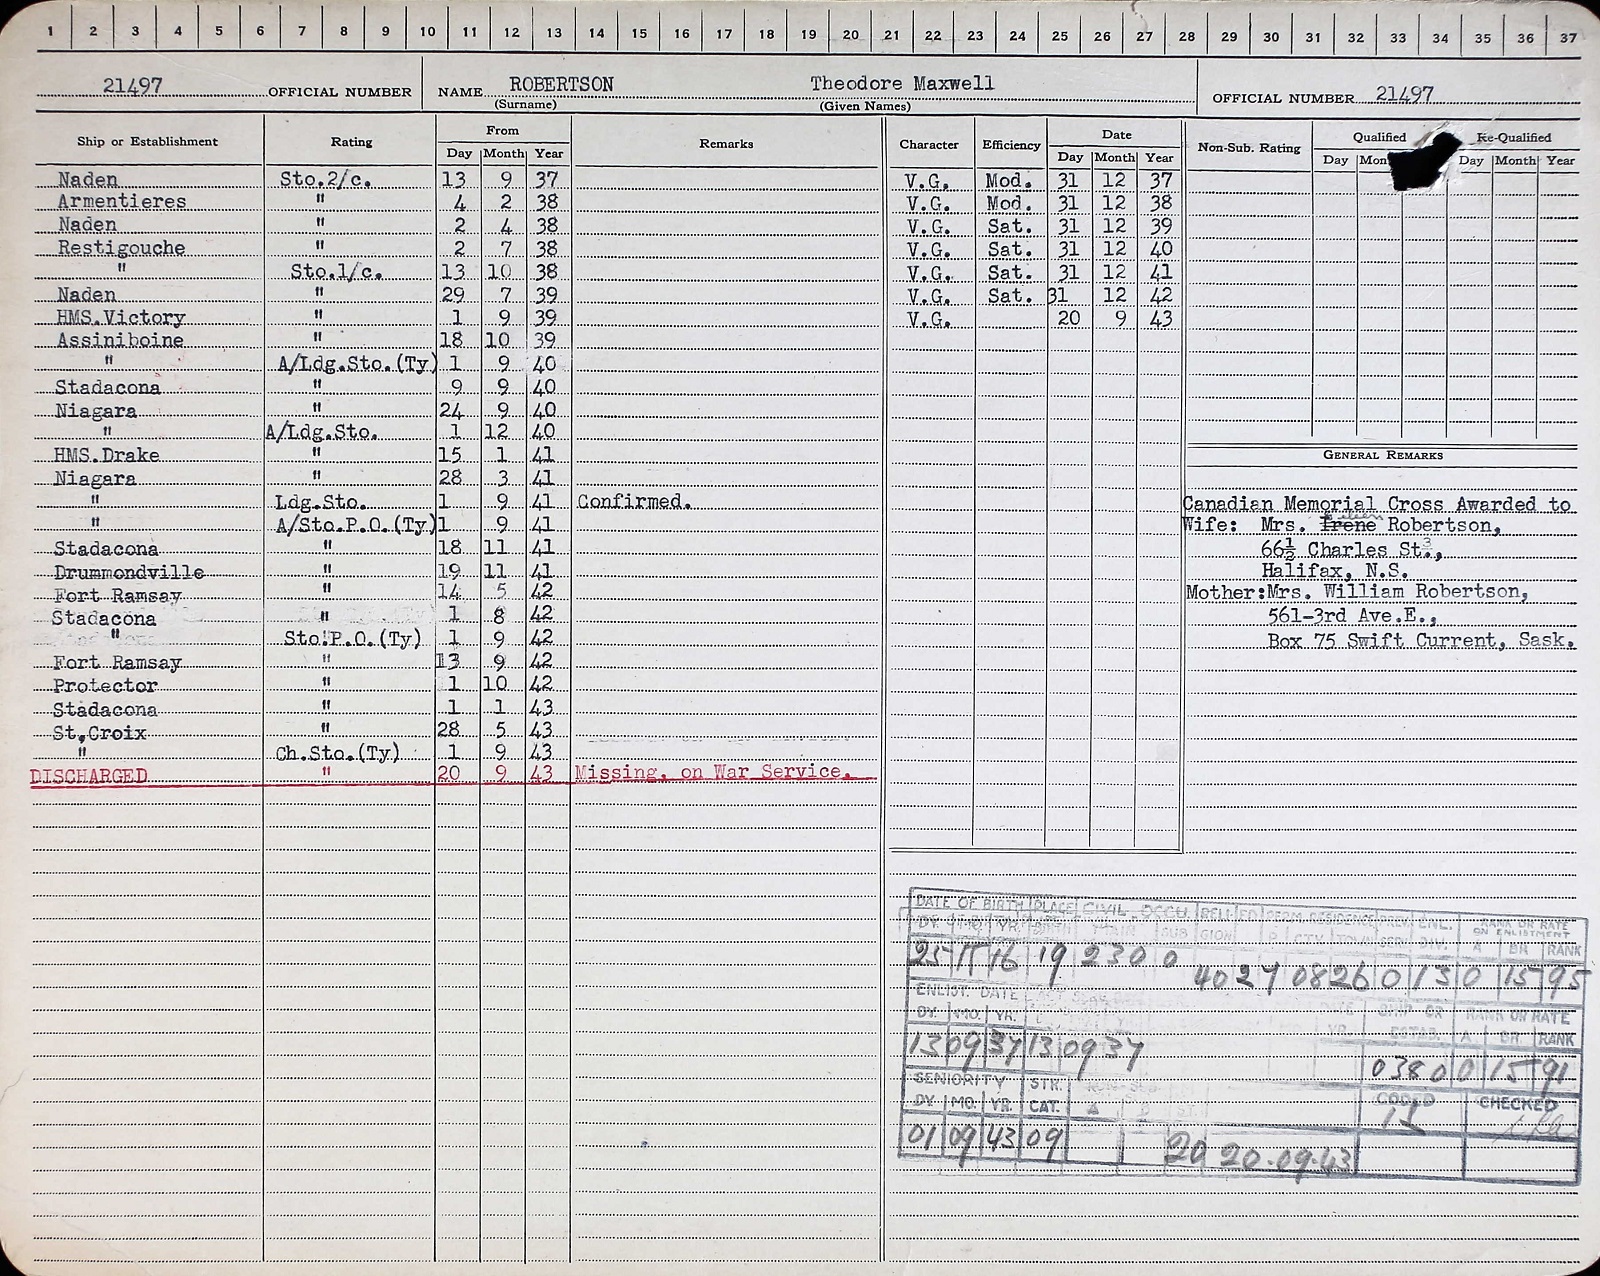 1 2 3 4 5 6 7 8 9 10 11 12 13 14 15 16 17 18 19 20 21 22 23 24 25 26 27 28 29 30 31 32 33 34 35 36 37
21497 OFFICIAL NUMBER NAME ROBERTSON Theodore Maxwell OFFICIAL NUMBER 21497
(Surname) (Given Names)
Ship or Establishment Rating From Remarks Character Efficiency Date Non-Sub. Rating Qualified Re-Qualified
Day Month Year Day Month Year Day Mon Day Month Year
Naden Sto.2/c. 13 9 37 V.G. Mod. 31 12 37
Armentieres " 4 2 38 V.G. Mod. 31 12 38
Naden " 2 4 38 V.G. Sat. 31 12 39
Restigouche " 2 7 38 V.G. Sat. 31 12 40
" Sto.1/c. 13 10 38 V.G. Sat. 31 12 41
Naden " 29 7 39 V.G. Sat. 31 12 42
HMS.Victory " 1 9 39 V.G. 20 9 43
Assiniboine " 18 10 39
" A/Ldg.Sto.(Ty) 1 9 40
Stadacona " 9 9 40
Niagara " 24 9 40
" A/Ldg.Sto. 1 12 40
HMS.Drake " 15 1 41
Niagara " 28 3 41
" Ldg.Sto. 1 9 41 Confirmed.
" A/Sto.P.O.(Ty) 1 9 41
Stadacona " 18 11 41
Drummondville " 19 11 41
Fort Ramsay " 14 5 42
Stadacona " 1 8 42
" Sto.P.O.(Ty) 1 9 42
Fort Ramsay " 13 9 42
Protector " 1 10 42
Stadacona " 1 1 43
St.Croix " 28 5 43
" Ch.Sto.(Ty) 1 9 43
DISCHARGED " 20 9 43 Missing, on War Service.
GENERAL REMARKS
Canadian Memorial Cross Awarded to
Wife: Mrs. Irene Robertson,
66½ Charles St.,
Halifax, N.S.
Mother: Mrs. William Robertson,
561-3rd Ave.E.,
Box 75 Swift Current, Sask.
DATE OF BIRTH PLACE CIVIL OCCU. RELI ED PERM. RESIDENCE PREV. ENL. RANK OR RATE
DY. MO. YR. BIRTH MAIN SUB GION CTY TOWN SERV. DIV. ON ENLISTMENT
A BR RANK
25 11 16 19 230 0 40 27 0826 0 13 0 15 95
ENLIST. DATE SHIP OR RANK OR RATE
DY. MO. YR. YR. ESTAB. A BR. RANK
13 09 37 13 09 37 0380 0 15 91
SENIORITY STR. CODED CHECKED
DY. MO. YR. CAT.
01 09 43 09 20 20.09.43